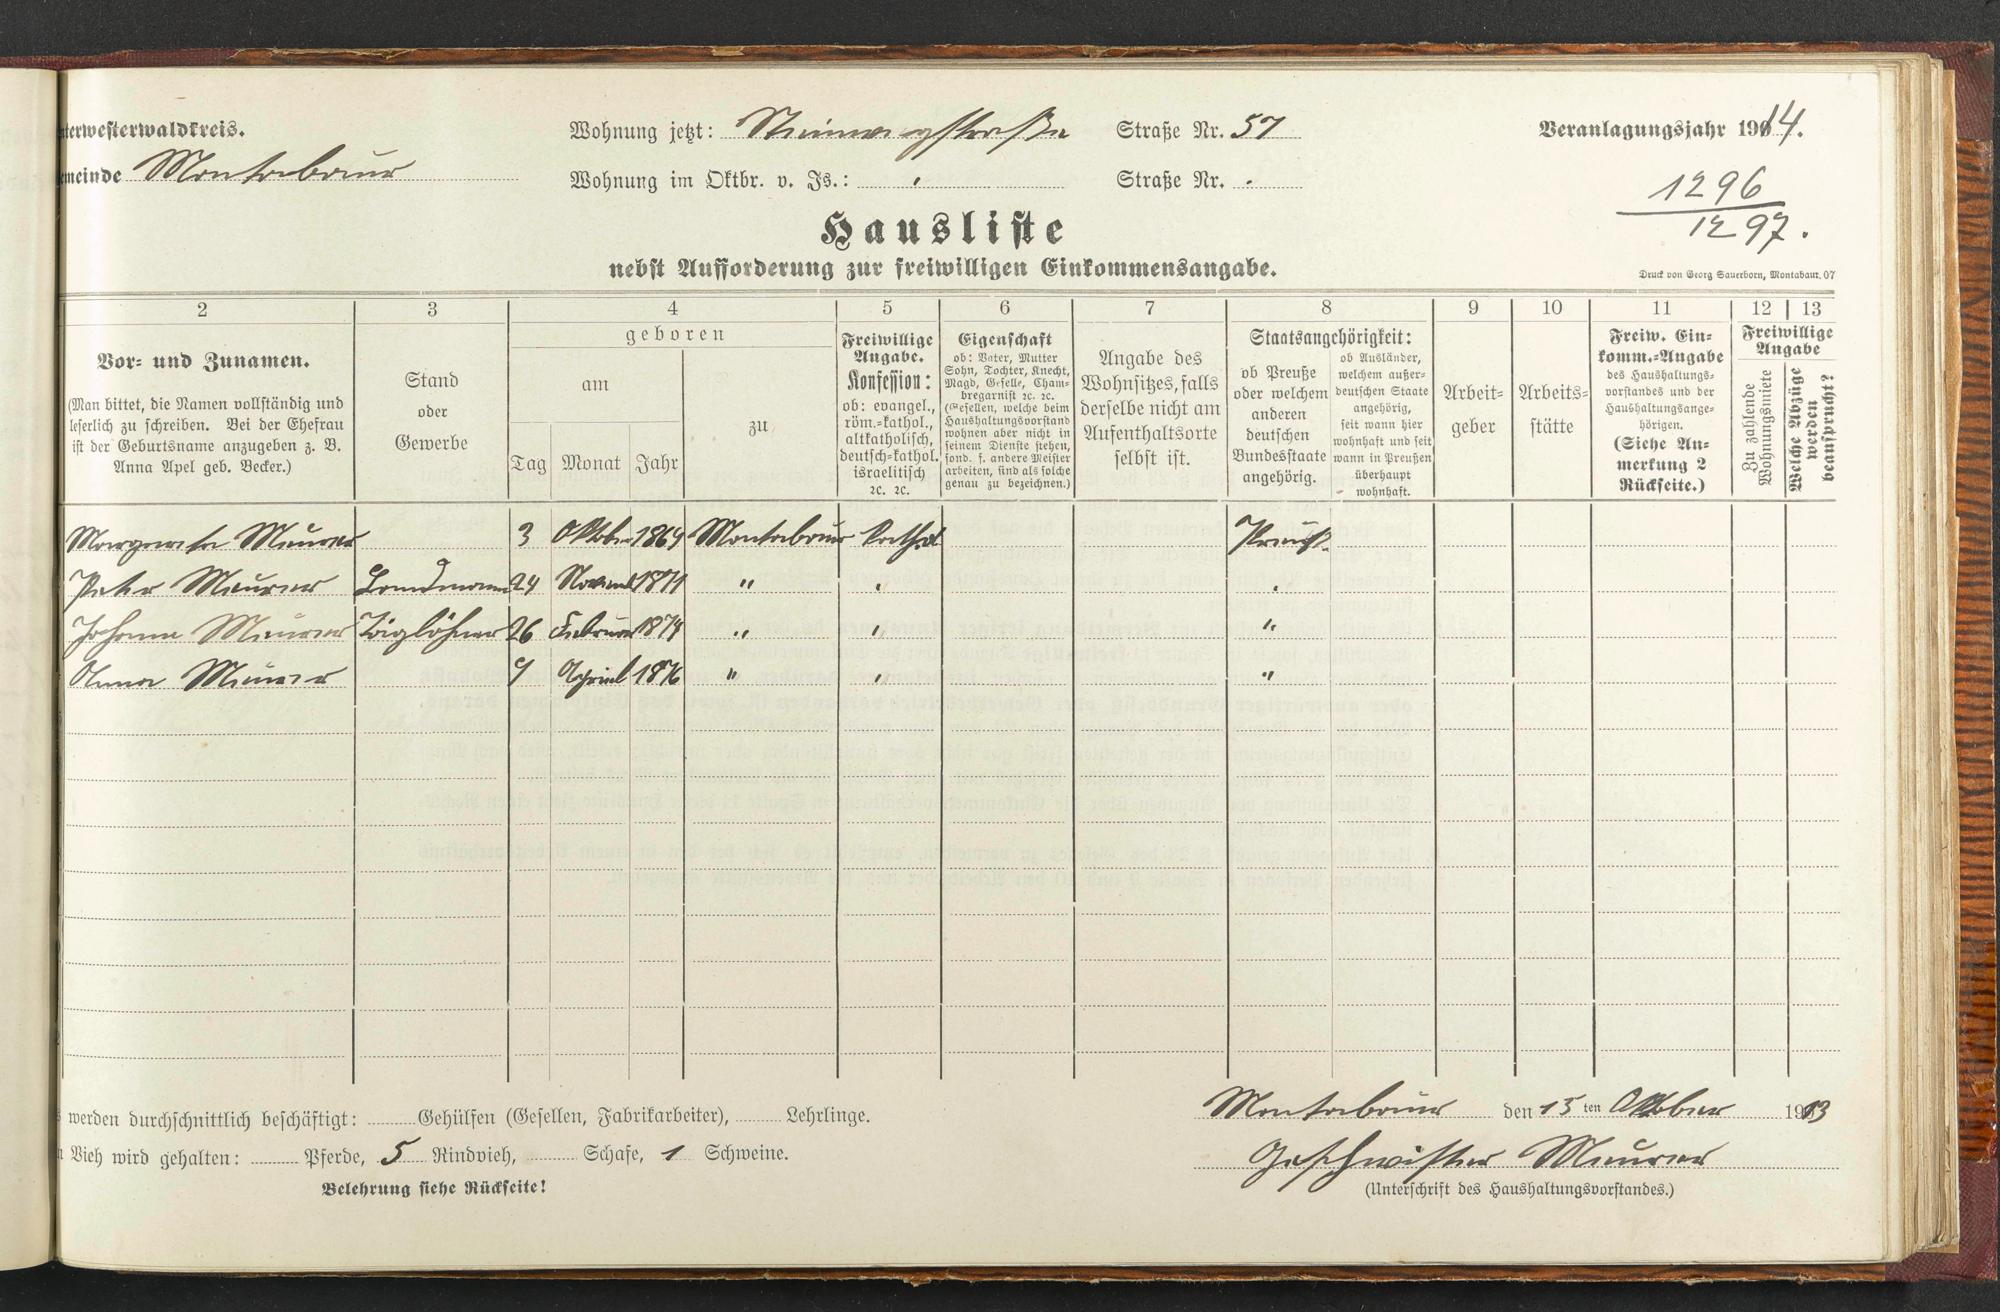 nterwesterwaldkreis. Wohnung jetzt: Steinwegstraße Straße Nr. 57 Veranlagungsjahr 1914.
emeinde Montabaur Wohnung im Oktbr. v. Js.: " Straße Nr. "
1296
1297.
Hausliste
nebst Aufforderung zur freiwilligen Einkommensangabe.
Druck von Georg Sauerborn, Montabaur. 07
2 3 4 5 6 7 8 9 10 11 12 13
Vor- und Zunamen.
(Man bittet, die Namen vollständig und
leserlich zu schreiben. Bei der Ehefrau
ist der Geburtsname anzugeben z. B.
Anna Apel geb. Becker.)
Stand
oder
Gewerbe
geboren
am
Tag Monat Jahr
zu
Freiwillige
Angabe.
Konfession:
ob: evangel.,
röm.-kathol.,
altkatholisch,
deutsch-kathol.
israelitisch
ꝛc. ꝛc.
Eigenschaft
ob: Vater, Mutter
Sohn, Tochter, Knecht,
Magd, Geselle, Cham-
bregarnist ꝛc. ꝛc.
(Gesellen, welche beim
Haushaltungsvorstand
wohnen aber nicht in
seinem Dienste stehen,
sond. f. andere Meister
arbeiten, sind als solche
genau zu bezeichnen.)
Angabe des
Wohnsitzes, falls
derselbe nicht am
Aufenthaltsorte
selbst ist.
Staatsangehörigkeit:
ob Preuße
oder welchem
anderen
deutschen
Bundesstaate
angehörig.
ob Ausländer,
welchem außer-
deutschen Staate
angehörig,
seit wann hier
wohnhaft und seit
wann in Preußen
überhaupt
wohnhaft.
Arbeit-
geber
Arbeits-
stätte
Freiw. Ein-
komm.-Angabe
des Haushaltungs-
vorstandes und der
Haushaltungsange-
hörigen.
(Siehe An-
merkung 2
Rückseite.)
Freiwillige
Angabe
Zu zahlende
Wohnungsmiete
Welche Abzüge
werden
beansprucht?
Margareta Meurer 3 Oktober 1864 Montabaur kathol. Preuß.
Peter Meurer Landmann 24 Novemb 1871 " " "
Johann Meurer 26 Februar 1874 " " "
Anna Meurer 9 April 1876 " " "
s werden durchschnittlich beschäftigt: Gehülfen (Gesellen, Fabrikarbeiter), Lehrlinge.
n Vieh wird gehalten: Pferde, 5 Rindvieh, Schafe, 1 Schweine.
Belehrung siehe Rückseite!
Montabaur den 15 ten Oktober 1913
Geschwister Meurer
(Unterschrift des Haushaltungsvorstandes.)